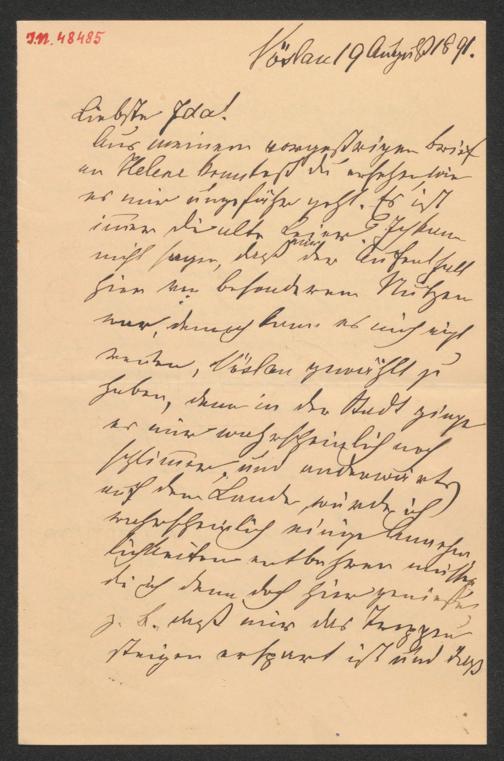 I.N. 48485
Vöslau 19 August 1891.
Liebste Ida!
Aus meinem vorgestrigen Brief
an Helene konntest du ersehen wie
es mir ungefähr geht. Es ist
immer die alte Leier. Ich kann
nicht sagen, daß mir der Aufenthalt
hier von besonderem Nutzen
war, dennoch kann es mich nicht
reuen, Vöslau gewählt zu
haben, denn in der Stadt ginge
es mir wahrscheinlich noch
schlimmer, und anderwärts
auf dem Lande, würde ich
wahrscheinlich einige Annehm
lichkeiten entbehren müssen
die ich denn doch hier genieße
z. B. daß mir das Treppen
steigen erspart ist und daß